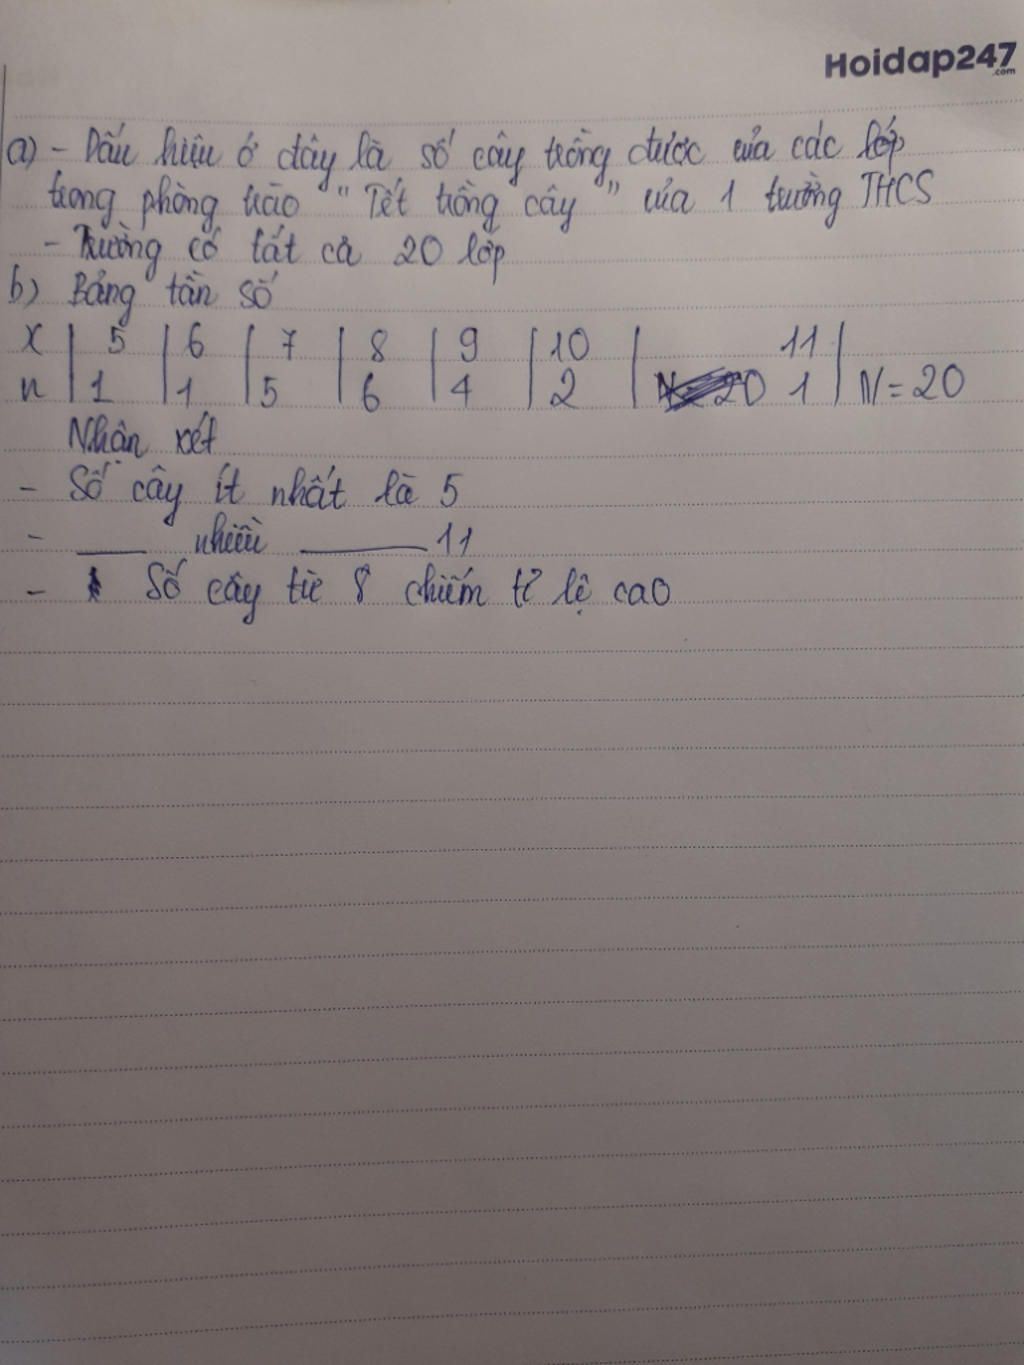 Hoidap247
.com
a) - Dấu hiệu ở đây là số cây trồng được của các lớp
trong phòng trào "Tết trồng cây" của 1 trường THCS
- Trường có tất cả 20 lớp
b) Bảng tần số
x | 5 | 6 | 7 | 8 | 9 | 10 | 11 |
n | 1 | 1 | 5 | 6 | 4 | 2 | 20 1 | N = 20
Nhận xét
- Số cây ít nhất là 5
- ___ nhiều ______ 11
- Số cây từ 8 chiếm tỉ lệ cao